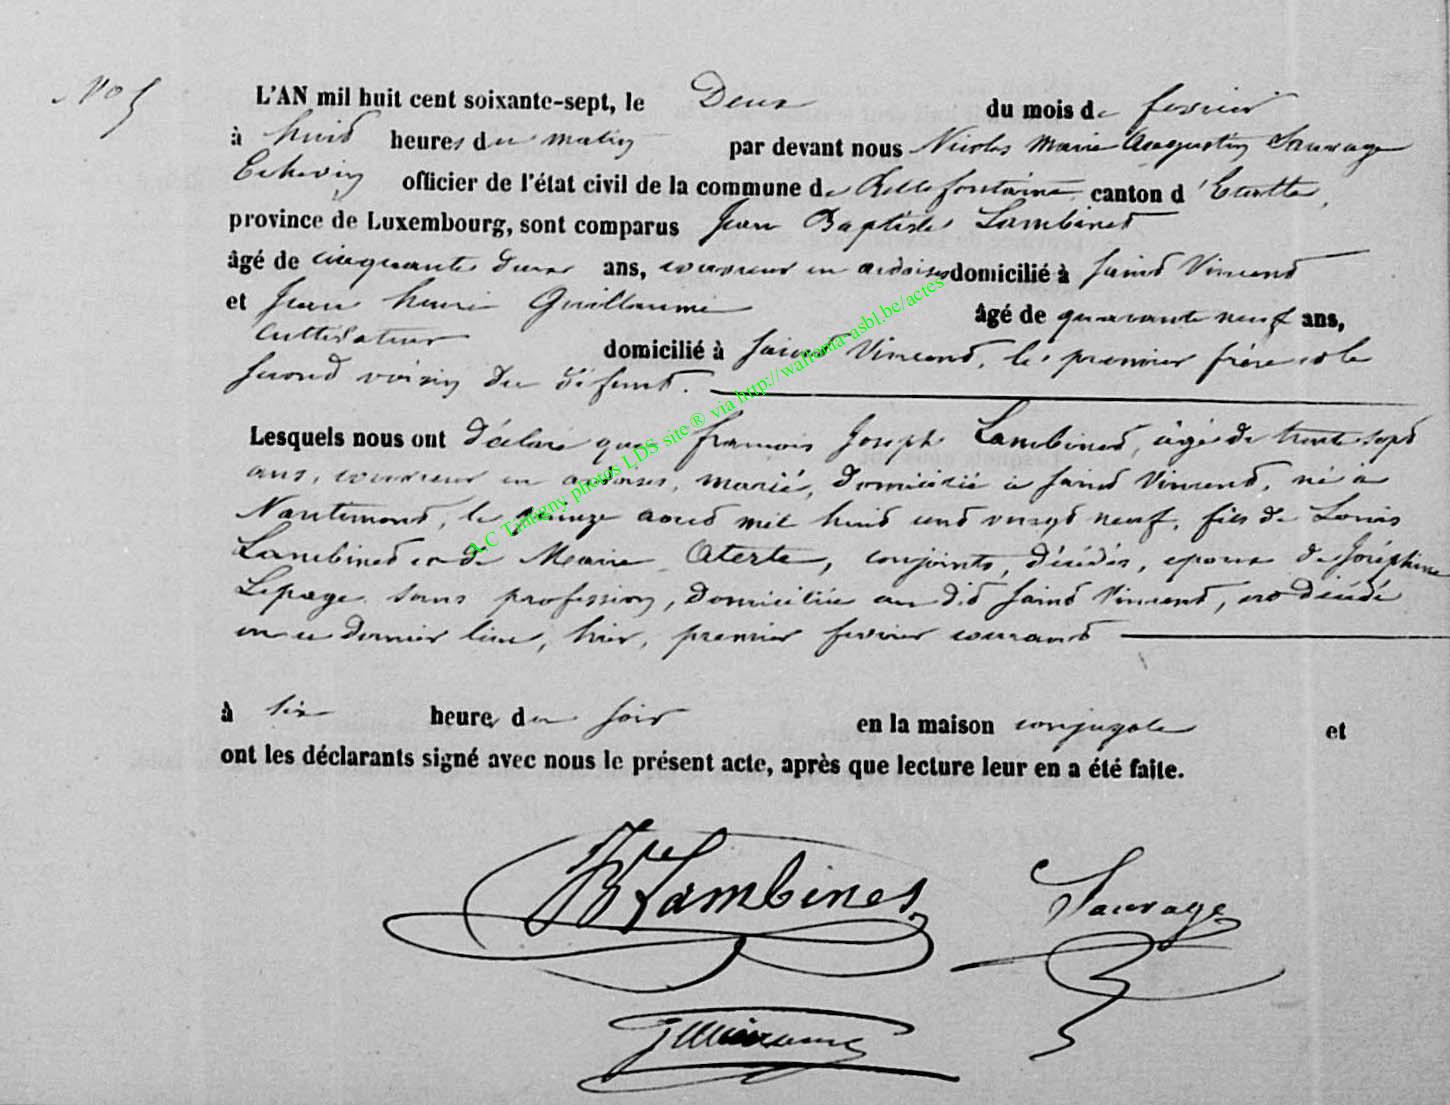 N° 5
L'AN mil huit cent soixante-sept, le Deux du mois de fevrier
à huit heures du matin par devant nous Nicolas Marie Augustin Sauvage
Echevin officier de l'état civil de la commune de Bellefontaine canton d'Etalle,
province de Luxembourg, sont comparus Jean Baptiste Lambinet
âgé de cinquante deux ans, couvreur en ardoises domicilié à Saint Vincent
et Jean henri Guillaume âgé de quarante neuf ans,
cultivateur domicilié à Saint Vincent, le premier frère et le
second voisin du défunt.
Lesquels nous ont déclaré que francois Joseph Lambinet, âgé de trente sept
ans, couvreur en ardoises, marié, domicilié à Saint Vincent, né à
Nantimont, le quinze aout mil huit cent vingt neuf, fils de Louis
Lambinet et de Marie Aterte, conjoints, décédés, epoux de Joséphine
Lepage sans profession, domiciliée au dit Saint Vincent, est décédé
en ce dernier lieu, hier, premier fevrier courant
à six heures du soir en la maison conjugale et
ont les déclarants signé avec nous le présent acte, après que lecture leur en a été faite.
JB Lambinet Sauvage
Guillaume
A.C Tintigny photos LDS site ® via http://wallonia-asbl.be/actes